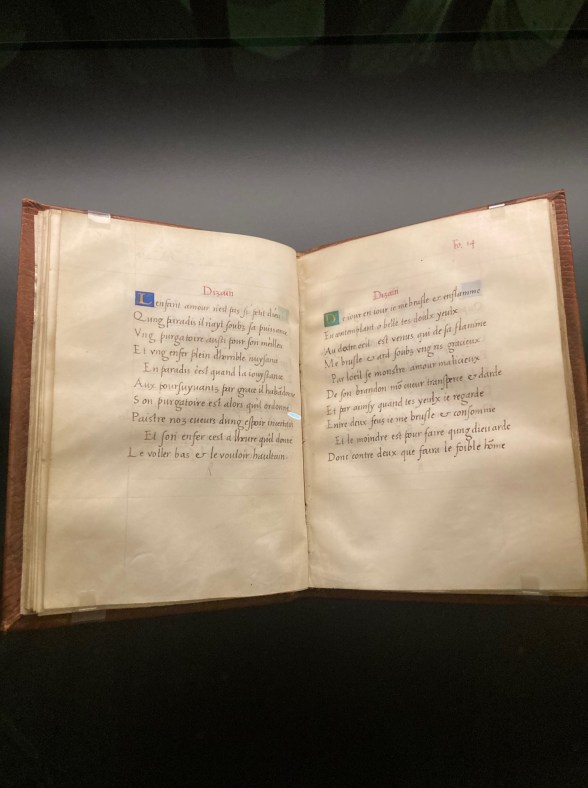 Dizain
Lenfant amour n'est pas si petit dieu
Qung paradis il nayt soubz sa puissance
Vng purgatoire aussi pour son millieu
Et vng enfer plein dhorrible nuysance
En paradis cest quand la iouyssance
Aux poursuyuants par grace il habandonne
Son purgatoire est alors quil ordonne
Paistre noz cueurs dung espoir incertain
Et son enfer cest a lheure quil donne
Le voller bas & le vouloir haultain.
Fo. 14
Dizain
De iour en iour ie me brusle & enflamme
En contemplant o belle tes doulx yeulx
Au dextre oeil est venus qui de sa flamme
Me brusle & ard soubz vng ris gracieux
Par loeil se monstre amour
De son brandon mō cueur transperce & darde
Et par ainsy quand tes yeulx ie regarde
Entre deux feux ie me brusle & consomme
Et le moindre est pour faire qung dieu arde
Donc contre deux que fara le foible hōme